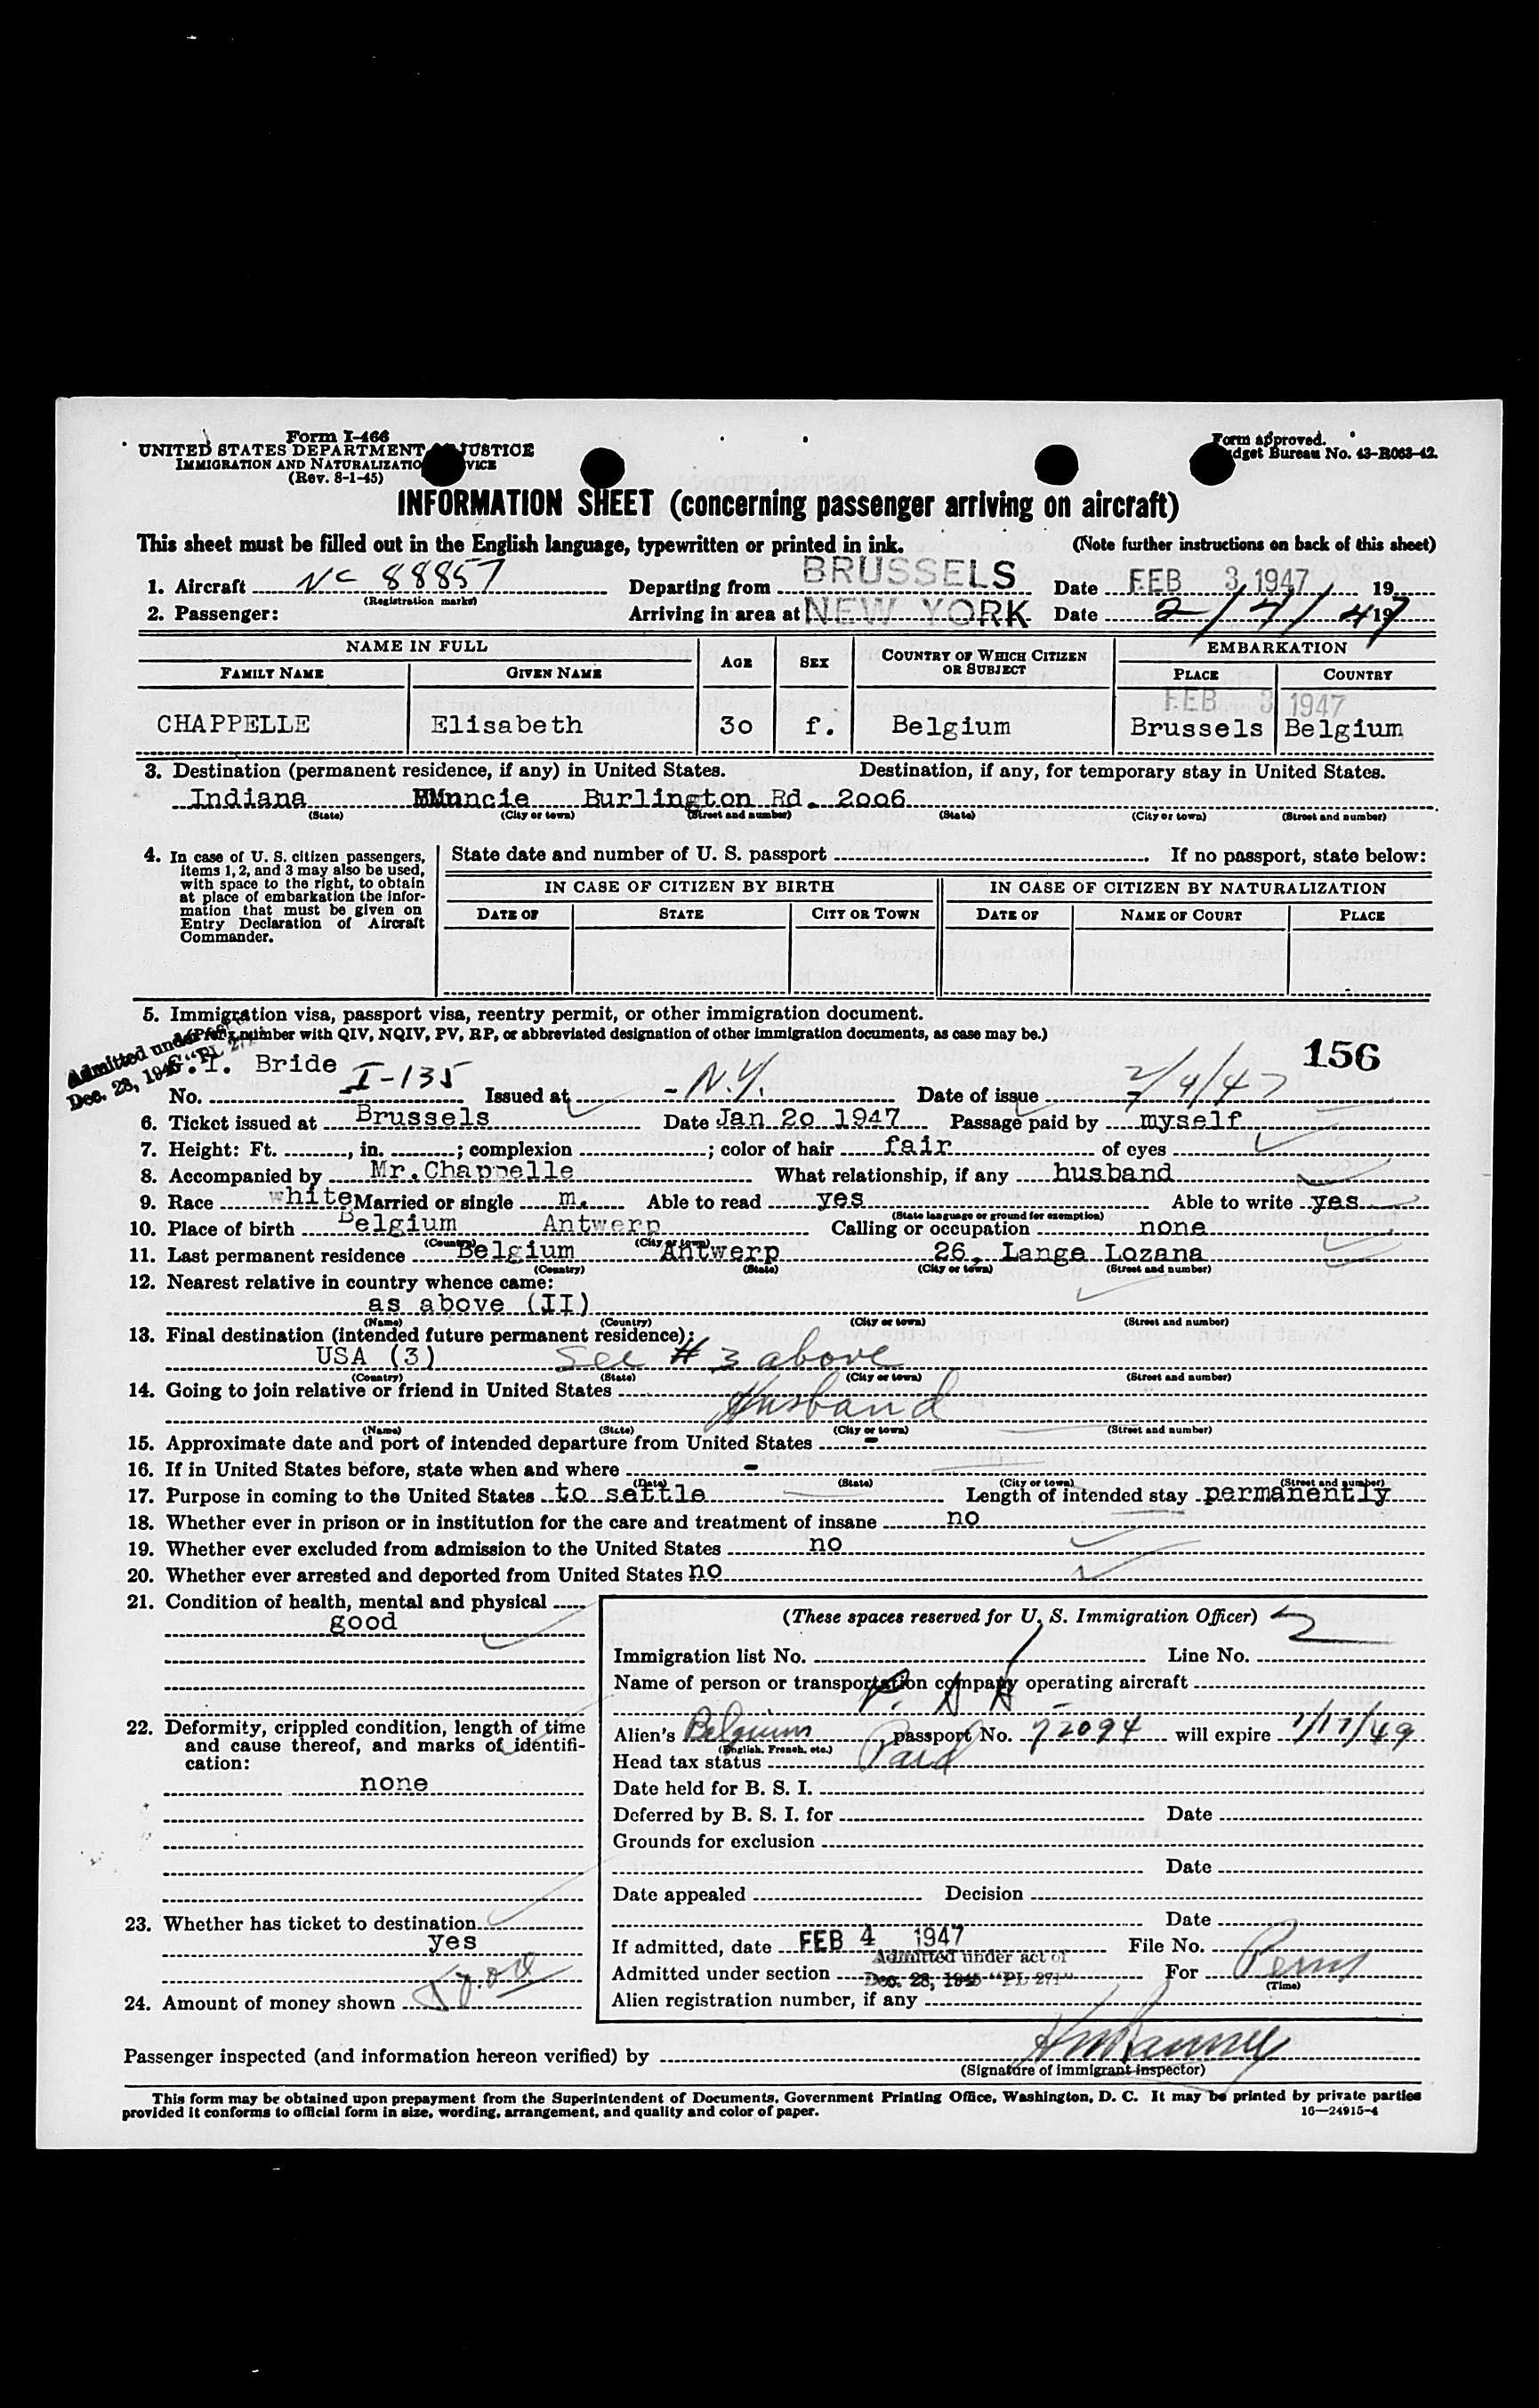 Form I-466
UNITED STATES DEPARTMENT JUSTICE
IMMIGRATION AND NATURALIZATIO VICE
(Rev. 8-1-45)
Form approved.
dget Bureau No. 43-R063-42.
INFORMATION SHEET (concerning passenger arriving on aircraft)
This sheet must be filled out in the English language, typewritten or printed in ink. (Note further instructions on back of this sheet)
1. Aircraft NC 88857 Departing from BRUSSELS Date FEB 3 1947 19
(Registration marks)
2. Passenger: Arriving in area at NEW YORK Date 2/4/47 19
NAME IN FULL AGE SEX COUNTRY OF WHICH CITIZEN OR SUBJECT EMBARKATION
FAMILY NAME GIVEN NAME PLACE COUNTRY
FEB 3 1947
CHAPPELLE Elisabeth 30 f. Belgium Brussels Belgium
3. Destination (permanent residence, if any) in United States. Destination, if any, for temporary stay in United States.
Indiana Muncie Burlington Rd. 2006
(State) (City or town) (Street and number) (State) (City or town) (Street and number)
4. In case of U. S. citizen passengers, items 1, 2, and 3 may also be used, with space to the right, to obtain at place of embarkation the information that must be given on Entry Declaration of Aircraft Commander.
State date and number of U. S. passport If no passport, state below:
IN CASE OF CITIZEN BY BIRTH IN CASE OF CITIZEN BY NATURALIZATION
DATE OF STATE CITY OR TOWN DATE OF NAME OF COURT PLACE
5. Immigration visa, passport visa, reentry permit, or other immigration document.
number with QIV, NQIV, PV, RP, or abbreviated designation of other immigration documents, as case may be.)
Admitted under
Dec. 28, 1945 "PL 271"
.I. Bride 156
No. I-135 Issued at - N.Y. Date of issue 2/4/47
6. Ticket issued at Brussels Date Jan 20 1947 Passage paid by myself
7. Height: Ft. , in. ; complexion ; color of hair fair of eyes
8. Accompanied by Mr.Chappelle What relationship, if any husband
9. Race white Married or single m. Able to read yes Able to write yes
(State language or ground for exemption)
10. Place of birth Belgium Antwerp Calling or occupation none
(Country) (City or town)
11. Last permanent residence Belgium Antwerp 26, Lange Lozana
(Country) (State) (City or town) (Street and number)
12. Nearest relative in country whence came:
as above (II)
(Name) (Country) (City or town) (Street and number)
13. Final destination (intended future permanent residence):
USA (3) See # 3 above
(Country) (State) (City or town) (Street and number)
14. Going to join relative or friend in United States
Husband
(Name) (State) (City or town) (Street and number)
15. Approximate date and port of intended departure from United States -
16. If in United States before, state when and where -
(Date) (State) (City or town) (Street and number)
17. Purpose in coming to the United States to settle Length of intended stay permanently
18. Whether ever in prison or in institution for the care and treatment of insane no
19. Whether ever excluded from admission to the United States no
20. Whether ever arrested and deported from United States no
21. Condition of health, mental and physical
good
22. Deformity, crippled condition, length of time and cause thereof, and marks of identification:
none
23. Whether has ticket to destination
yes
24. Amount of money shown
(These spaces reserved for U. S. Immigration Officer)
Immigration list No. Line No. 2
Name of person or transportation company operating aircraft
P. A A
Alien's Belgium passport No. 72094 will expire 1/17/49
(English, French, etc.)
Head tax status Paid
Date held for B. S. I.
Deferred by B. S. I. for Date
Grounds for exclusion
Date
Date appealed Decision
Date
If admitted, date FEB 4 1947 File No.
Admitted under act of
Admitted under section Dec. 28, 1945 "PL 271" For Perm
(Time)
Alien registration number, if any
Passenger inspected (and information hereon verified) by
(Signature of immigrant inspector)
This form may be obtained upon prepayment from the Superintendent of Documents, Government Printing Office, Washington, D. C. It may be printed by private parties
provided it conforms to official form in size, wording, arrangement, and quality and color of paper. 16—24915-4